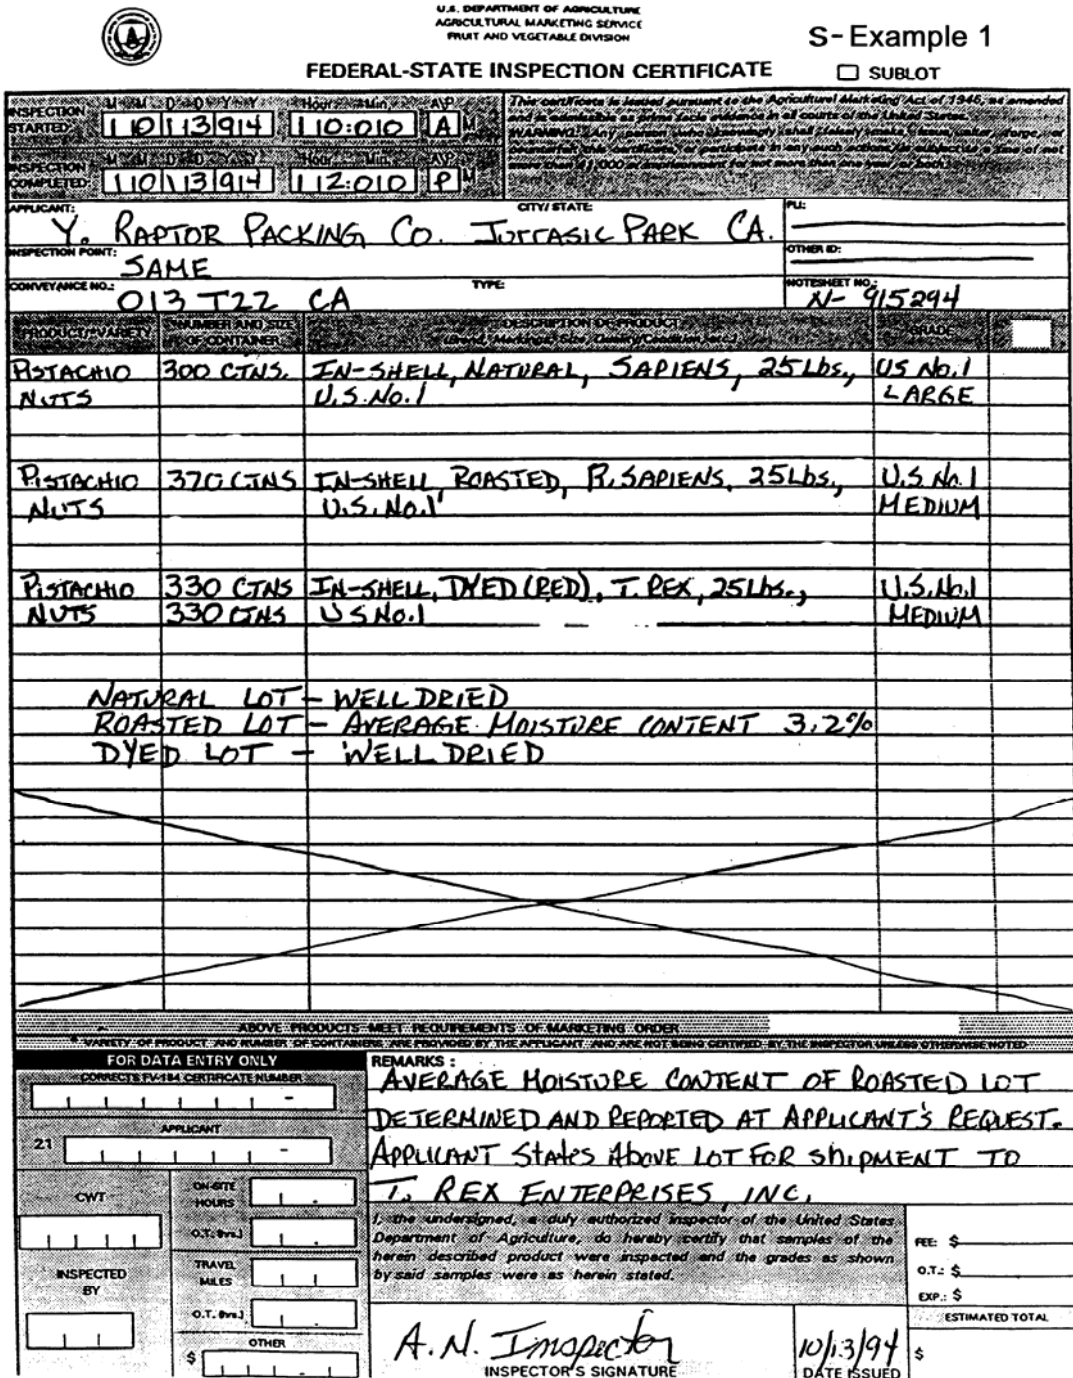 U.S. DEPARTMENT OF AGRICULTURE
AGRICULTURAL MARKETING SERVICE
FRUIT AND VEGETABLE DIVISION
S-Example 1
FEDERAL-STATE INSPECTION CERTIFICATE
SUBLOT
INSPECTION STARTED: M M D D Y Y Hour Min. A/P
10 13 94 10:00 A M
INSPECTION COMPLETED: M M D D Y Y Hour Min. A/P
10 13 94 12:00 P M
This certificate is issued pursuant to the Agricultural Marketing Act of 1946, as amended
and is admissible as prima facie evidence in all courts of the United States.
WARNING: Any person who knowingly shall falsely make, issue, alter, forge, or
counterfeit this certificate, or participate in any such actions, is subject to a fine of not
more than $1,000 or imprisonment for not more than one year, or both.
APPLICANT: CITY/STATE: PLI:
Y. RAPTOR PACKING CO. JURRASIC PARK CA.
INSPECTION POINT: SAME OTHER ID:
CONVEYANCE NO.: 013 T22 CA TYPE: NOTESHEET NO.: N-915294
PRODUCT/*VARIETY *NUMBER AND SIZE OF CONTAINER DESCRIPTION OF PRODUCT GRADE
(Brand, Markings, Size, Quality/Condition, etc.)
PISTACHIO 300 CTNS. IN-SHELL, NATURAL, SAPIENS, 25 Lbs., US No.1
NUTS U.S. No.1 LARGE
PISTACHIO 370 CTNS IN-SHELL, ROASTED, R. SAPIENS, 25 Lbs., U.S. No.1
NUTS U.S. No.1 MEDIUM
PISTACHIO 330 CTNS IN-SHELL, DYED (RED), T. REX, 25 Lbs., U.S. No.1
NUTS 330 CTNS U S No.1 MEDIUM
NATURAL LOT - WELL DRIED
ROASTED LOT - AVERAGE MOISTURE CONTENT 3.2%
DYED LOT - WELL DRIED
ABOVE PRODUCTS MEET REQUIREMENTS OF MARKETING ORDER
* VARIETY OF PRODUCT AND NUMBER OF CONTAINERS ARE PROVIDED BY THE APPLICANT AND ARE NOT BEING CERTIFIED BY THE INSPECTOR UNLESS OTHERWISE NOTED
FOR DATA ENTRY ONLY
CORRECTS FV-184 CERTIFICATE NUMBER
-
APPLICANT
21 -
CWT
ON-SITE HOURS
O.T. (hrs.)
INSPECTED BY
TRAVEL MILES
O.T. (hrs.)
OTHER
$
REMARKS:
AVERAGE MOISTURE CONTENT OF ROASTED LOT
DETERMINED AND REPORTED AT APPLICANT'S REQUEST.
APPLICANT STATES ABOVE LOT FOR SHIPMENT TO
T. REX ENTERPRISES, INC.
I, the undersigned, a duly authorized inspector of the United States
Department of Agriculture, do hereby certify that samples of the
herein described product were inspected and the grades as shown
by said samples were as herein stated.
FEE: $
O.T.: $
EXP.: $
ESTIMATED TOTAL
$
A. N. Inspector
INSPECTOR'S SIGNATURE
10/13/94
DATE ISSUED